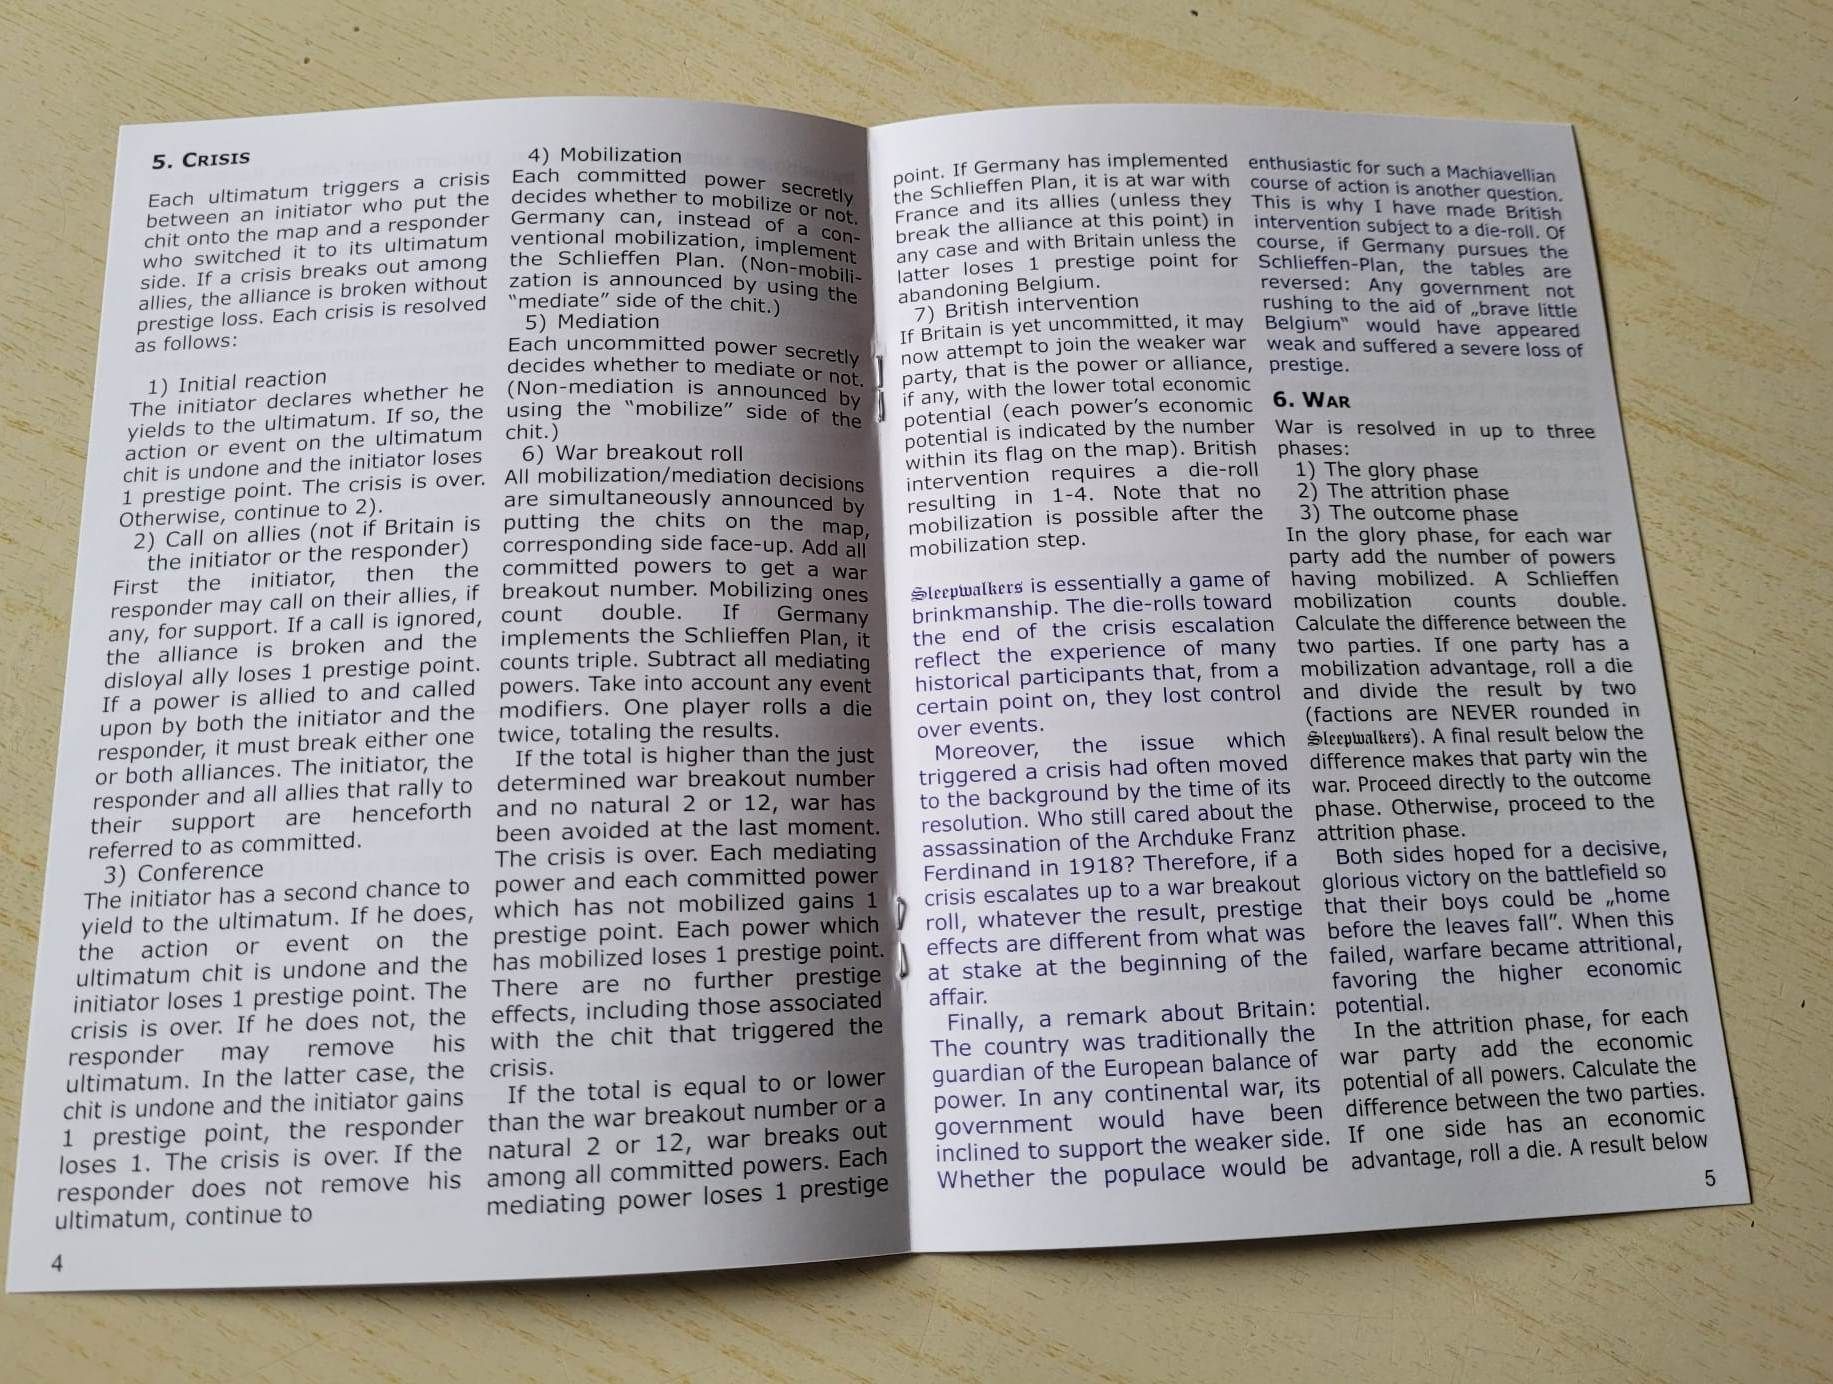 5. CRISIS
Each ultimatum triggers a crisis
between an initiator who put the
chit onto the map and a responder
who switched it to its ultimatum
side. If a crisis breaks out among
allies, the alliance is broken without
prestige loss. Each crisis is resolved
as follows:
1) Initial reaction
The initiator declares whether he
yields to the ultimatum. If so, the
action or event on the ultimatum
chit is undone and the initiator loses
1 prestige point. The crisis is over.
Otherwise, continue to 2).
2) Call on allies (not if Britain is
the initiator or the responder)
First the initiator, then the
responder may call on their allies, if
any, for support. If a call is ignored,
the alliance is broken and the
disloyal ally loses 1 prestige point.
If a power is allied to and called
upon by both the initiator and the
responder, it must break either one
or both alliances. The initiator, the
responder and all allies that rally to
their support are henceforth
referred to as committed.
3) Conference
The initiator has a second chance to
yield to the ultimatum. If he does,
the action or event on the
ultimatum chit is undone and the
initiator loses 1 prestige point. The
crisis is over. If he does not, the
responder may remove his
ultimatum. In the latter case, the
chit is undone and the initiator gains
1 prestige point, the responder
loses 1. The crisis is over. If the
responder does not remove his
ultimatum, continue to
4
4) Mobilization
Each committed power secretly
decides whether to mobilize or not.
Germany can, instead of a con-
ventional mobilization, implement
the Schlieffen Plan. (Non-mobili-
zation is announced by using the
"mediate" side of the chit.)
5) Mediation
Each uncommitted power secretly
decides whether to mediate or not.
(Non-mediation is announced by
using the "mobilize" side of the
chit.)
6) War breakout roll
All mobilization/mediation decisions
are simultaneously announced by
putting the chits on the map,
corresponding side face-up. Add all
committed powers to get a war
breakout number. Mobilizing ones
count double. If Germany
implements the Schlieffen Plan, it
counts triple. Subtract all mediating
powers. Take into account any event
modifiers. One player rolls a die
twice, totaling the results.
If the total is higher than the just
determined war breakout number
and no natural 2 or 12, war has
been avoided at the last moment.
The crisis is over. Each mediating
power and each committed power
which has not mobilized gains 1
prestige point. Each power which
has mobilized loses 1 prestige point.
There are no further prestige
effects, including those associated
with the chit that triggered the
crisis.
If the total is equal to or lower
than the war breakout number or a
natural 2 or 12, war breaks out
among all committed powers. Each
mediating power loses 1 prestige
point. If Germany has implemented
the Schlieffen Plan, it is at war with
France and its allies (unless they
break the alliance at this point) in
any case and with Britain unless the
latter loses 1 prestige point for
abandoning Belgium.
7) British intervention
If Britain is yet uncommitted, it may
now attempt to join the weaker war
party, that is the power or alliance,
if any, with the lower total economic
potential (each power's economic
potential is indicated by the number
within its flag on the map). British
intervention requires a die-roll
resulting in 1-4. Note that no
mobilization is possible after the
mobilization step.
Sleepwalkers is essentially a game of
brinkmanship. The die-rolls toward
the end of the crisis escalation
reflect the experience of many
historical participants that, from a
certain point on, they lost control
over events.
Moreover, the issue which
triggered a crisis had often moved
to the background by the time of its
resolution. Who still cared about the
assassination of the Archduke Franz
Ferdinand in 1918? Therefore, if a
crisis escalates up to a war breakout
roll, whatever the result, prestige
effects are different from what was
at stake at the beginning of the
affair.
Finally, a remark about Britain:
The country was traditionally the
guardian of the European balance of
power. In any continental war, its
government would have been
inclined to support the weaker side.
Whether the populace would be
enthusiastic for such a Machiavellian
course of action is another question.
This is why I have made British
intervention subject to a die-roll. Of
course, if Germany pursues the
Schlieffen-Plan, the tables are
reversed: Any government not
rushing to the aid of „brave little
Belgium“ would have appeared
weak and suffered a severe loss of
prestige.
6. WAR
War is resolved in up to three
phases:
1) The glory phase
2) The attrition phase
3) The outcome phase
In the glory phase, for each war
party add the number of powers
having mobilized. A Schlieffen
mobilization counts double.
Calculate the difference between the
two parties. If one party has a
mobilization advantage, roll a die
and divide the result by two
(factions are NEVER rounded in
Sleepwalkers). A final result below the
difference makes that party win the
war. Proceed directly to the outcome
phase. Otherwise, proceed to the
attrition phase.
Both sides hoped for a decisive,
glorious victory on the battlefield so
that their boys could be „home
before the leaves fall”. When this
failed, warfare became attritional,
favoring the higher economic
potential.
In the attrition phase, for each
war party add the economic
potential of all powers. Calculate the
difference between the two parties.
If one side has an economic
advantage, roll a die. A result below
5